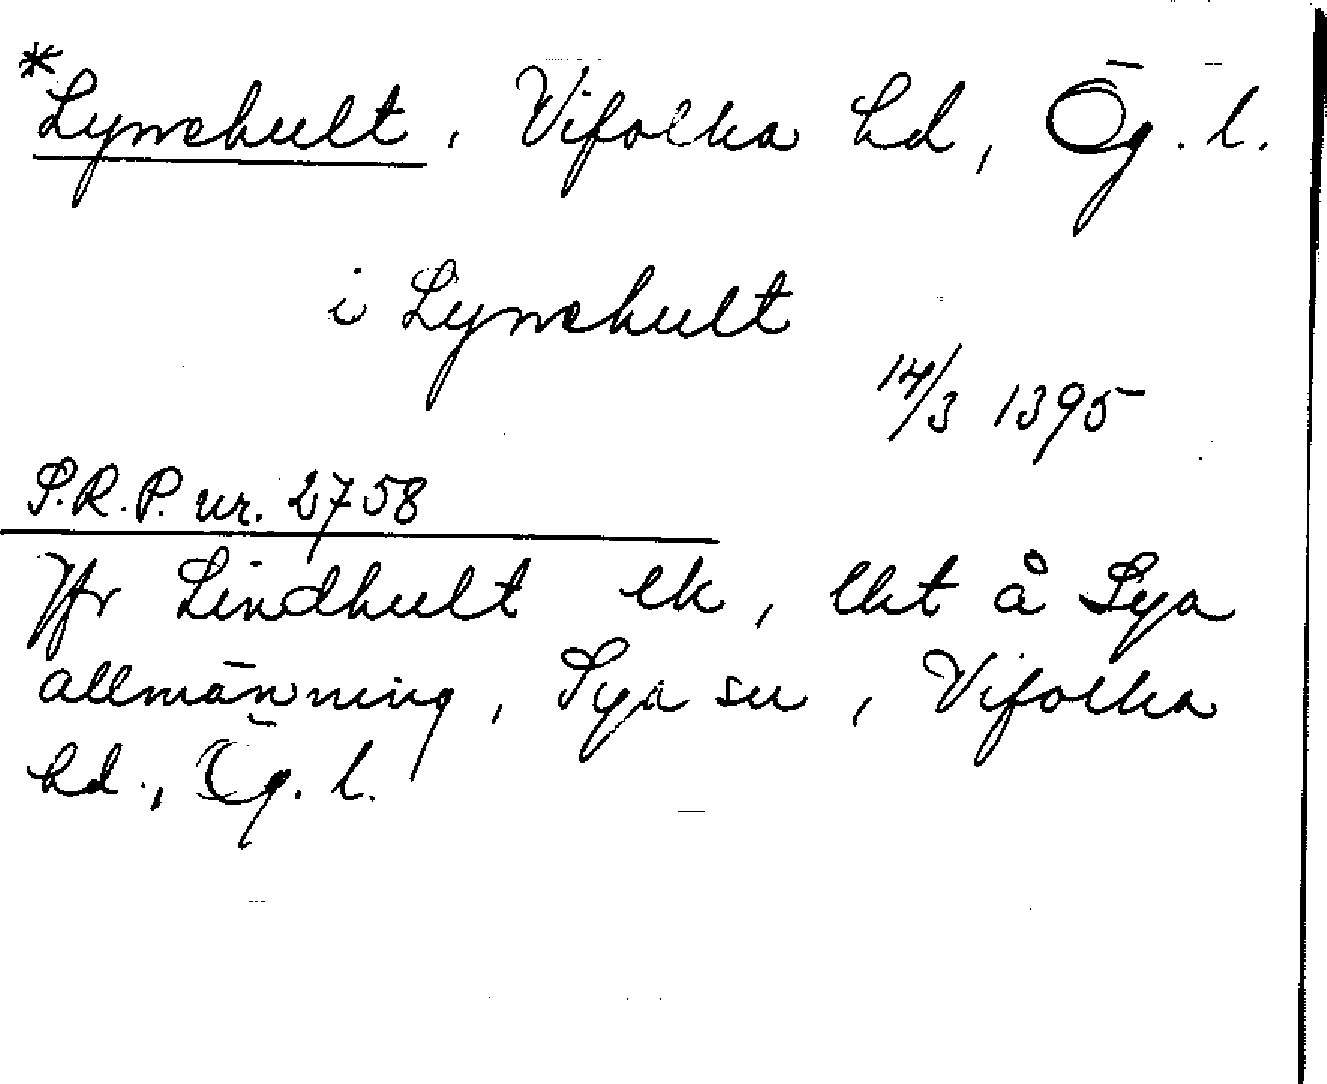 *Lynchult, Vifolka hd, Ög. l.
i Lynchult
14/3 1395
S.R.P. nr. 2758
Jfr Lindhult ek, lht å Sya
allmänning, Sya sn, Vifolka
hd., Ög. l.